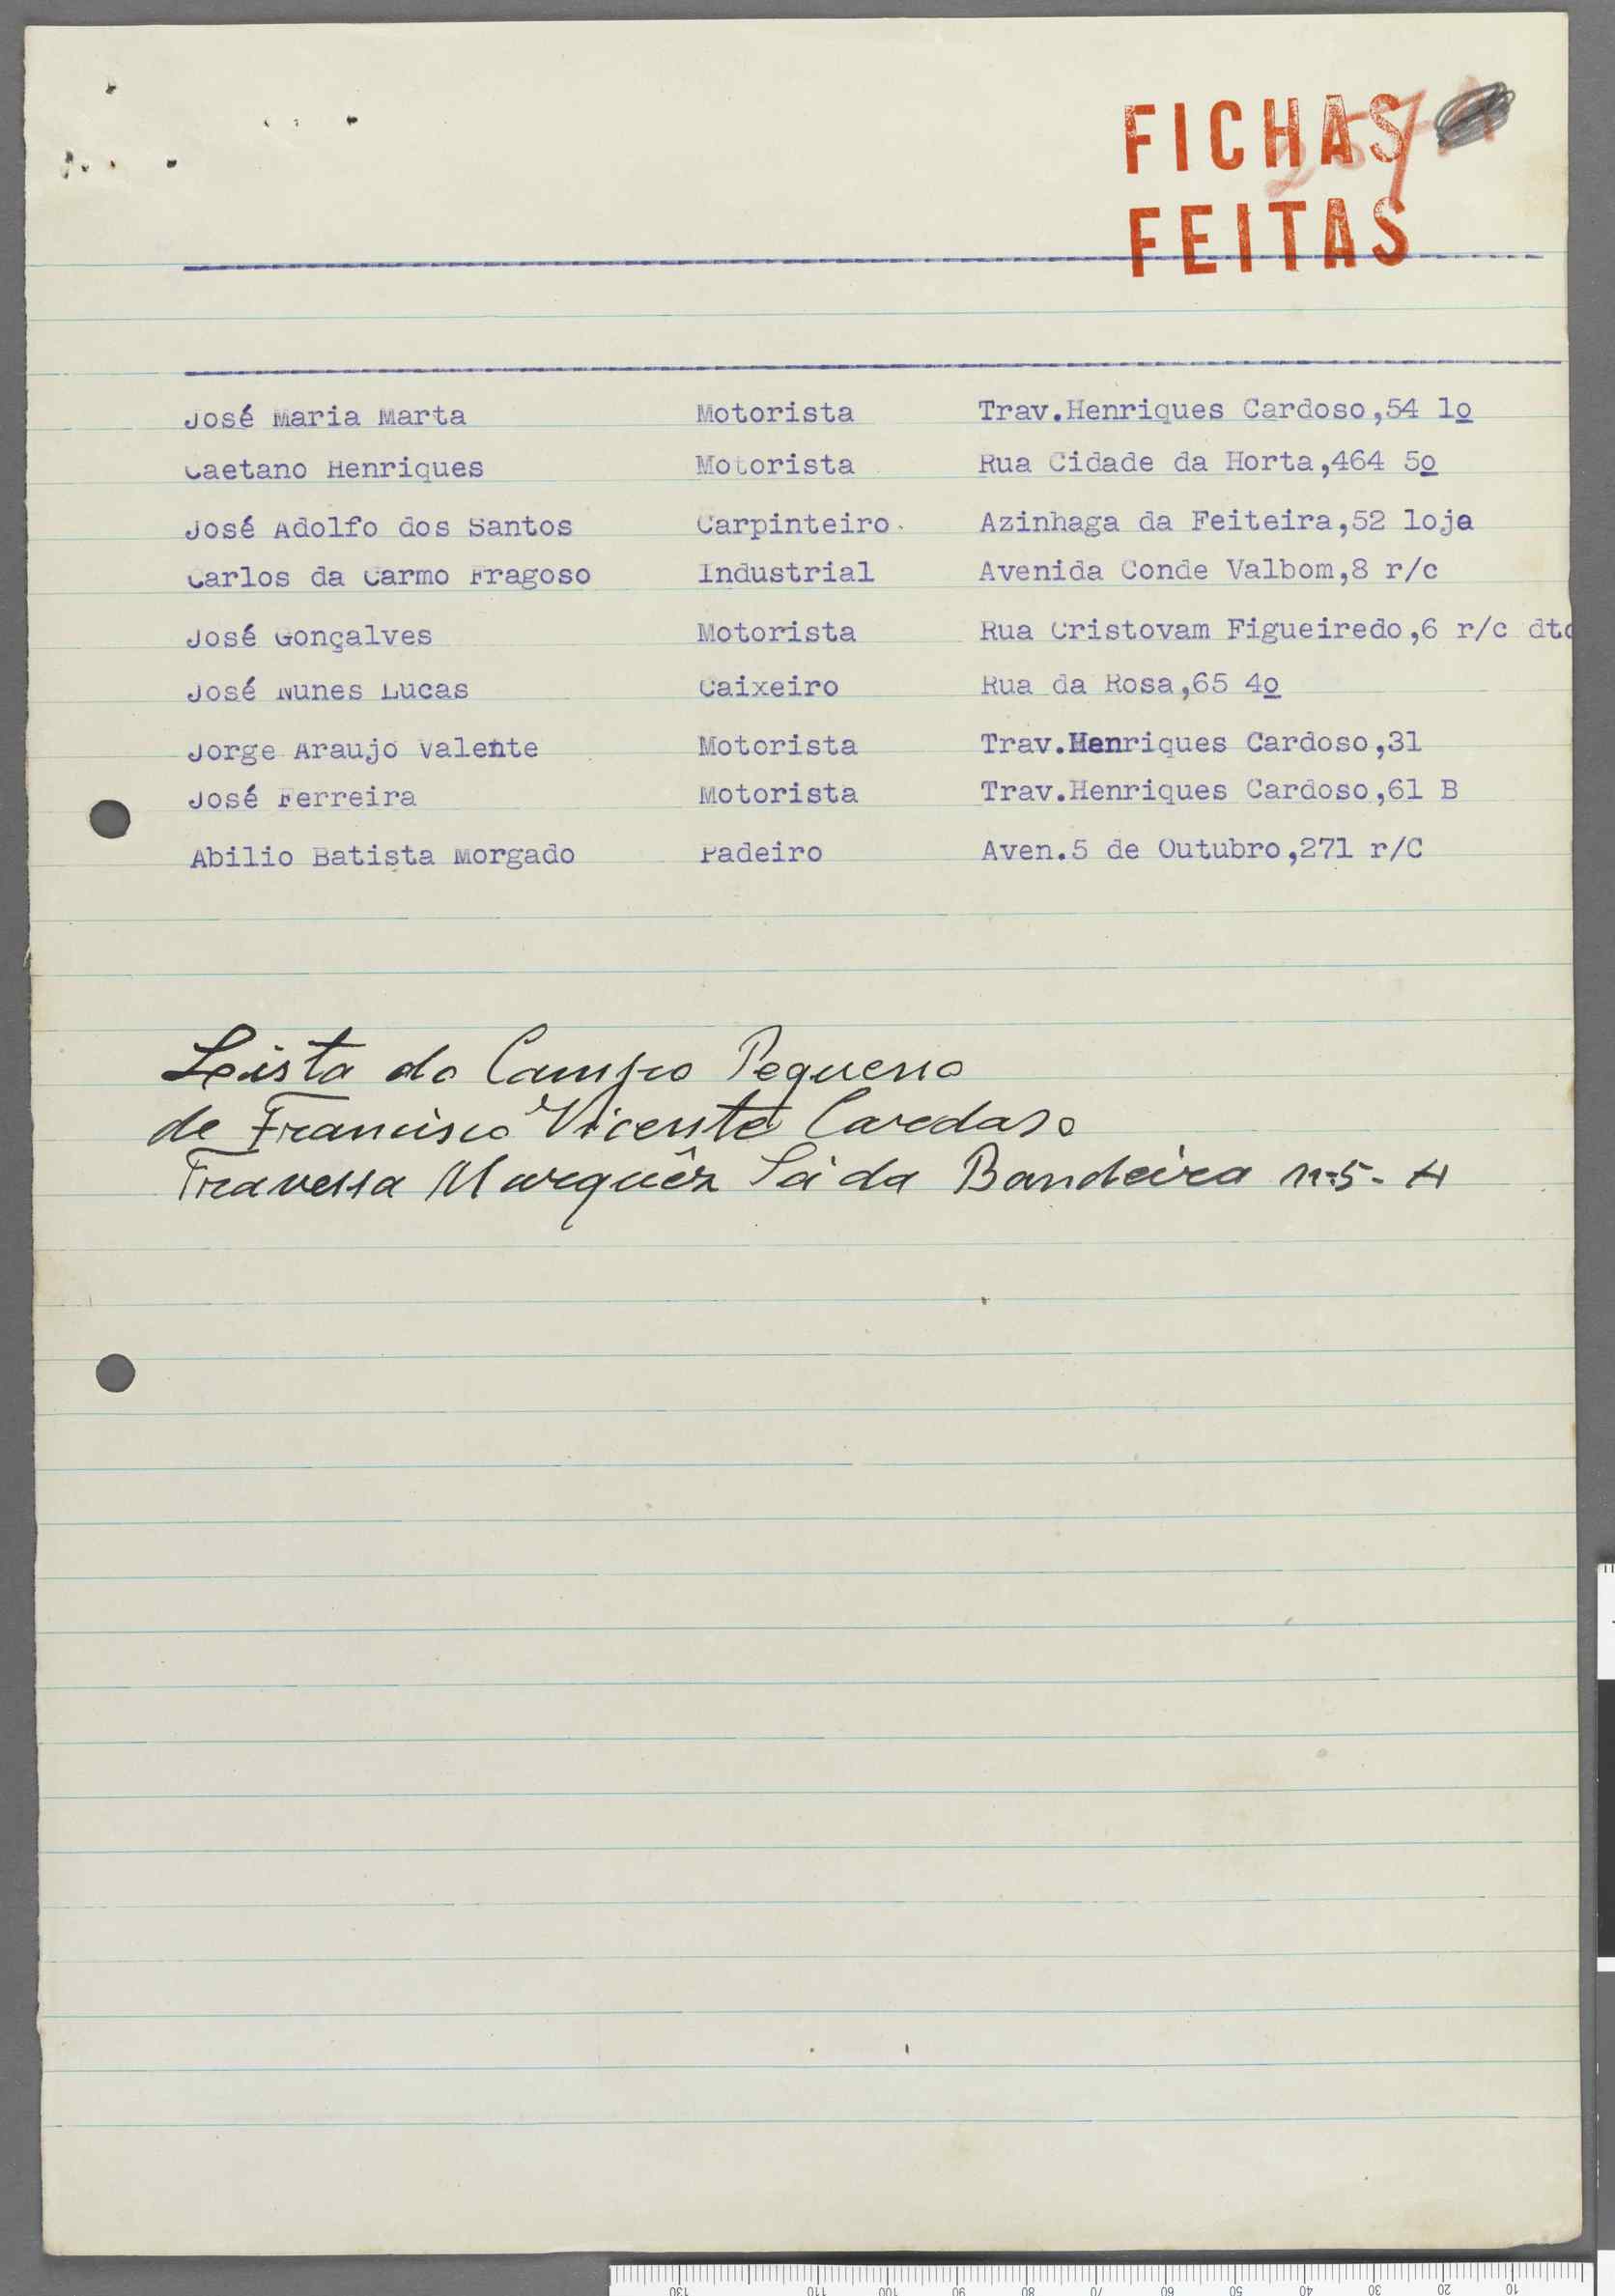 FICHAS
FEITAS
José Maria Marta Motorista Trav.Henriques Cardoso,54 1º
Caetano Henriques Motorista Rua Cidade da Horta,464 5º
José Adolfo dos Santos Carpinteiro. Azinhaga da Feiteira,52 loja
Carlos da Carmo Fragoso Industrial Avenida Conde Valbom,8 r/c
José Gonçalves Motorista Rua Cristovam Figueiredo,6 r/c dto
José Nunes Lucas Caixeiro Rua da Rosa,65 4º
Jorge Araujo Valente Motorista Trav.Henriques Cardoso,31
José Ferreira Motorista Trav.Henriques Cardoso,61 B
Abilio Batista Morgado Padeiro Aven.5 de Outubro,271 r/C
Leista do Campo Pequeno
de Francisco Vicente Caredaso
Travessa Marquêz Sá da Bandeira nº5-
130 110 100 90 80 70 60 50 40 30 20 10